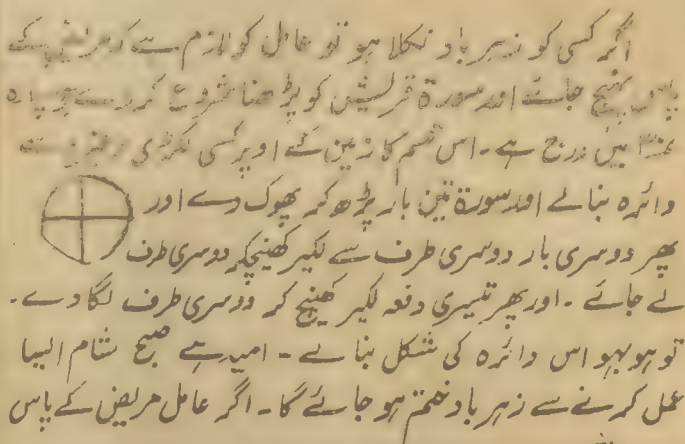 اگر کسی کو زہر باد نکلا ہو تو عامل کو لازم ہے کہ مریض کے
پاس پہنچ جائے اور سورۃ قریش کو پڑھنا شروع کر دے جو پارہ
میں درج ہے۔ اس قسم کا زمین کے اوپر کسی لکڑی وغیرہ سے
دائرہ بنائے اور سورۃ تین بار پڑھ کر پھوک دے اور
پھر دوسری بار دوسری طرف سے لکیر کھینچکر دوسری طرف
لے جائے۔ اور پھر تیسری دفعہ لکیر کھینچ کر دوسری طرف لگا دے۔
تو ہو بہو اس دائرہ کی شکل بنا لے۔ امید ہے صبح شام ایسا
عمل کرنے سے زہر باد ختم ہو جائے گا۔ اگر عامل مریض کے پاس